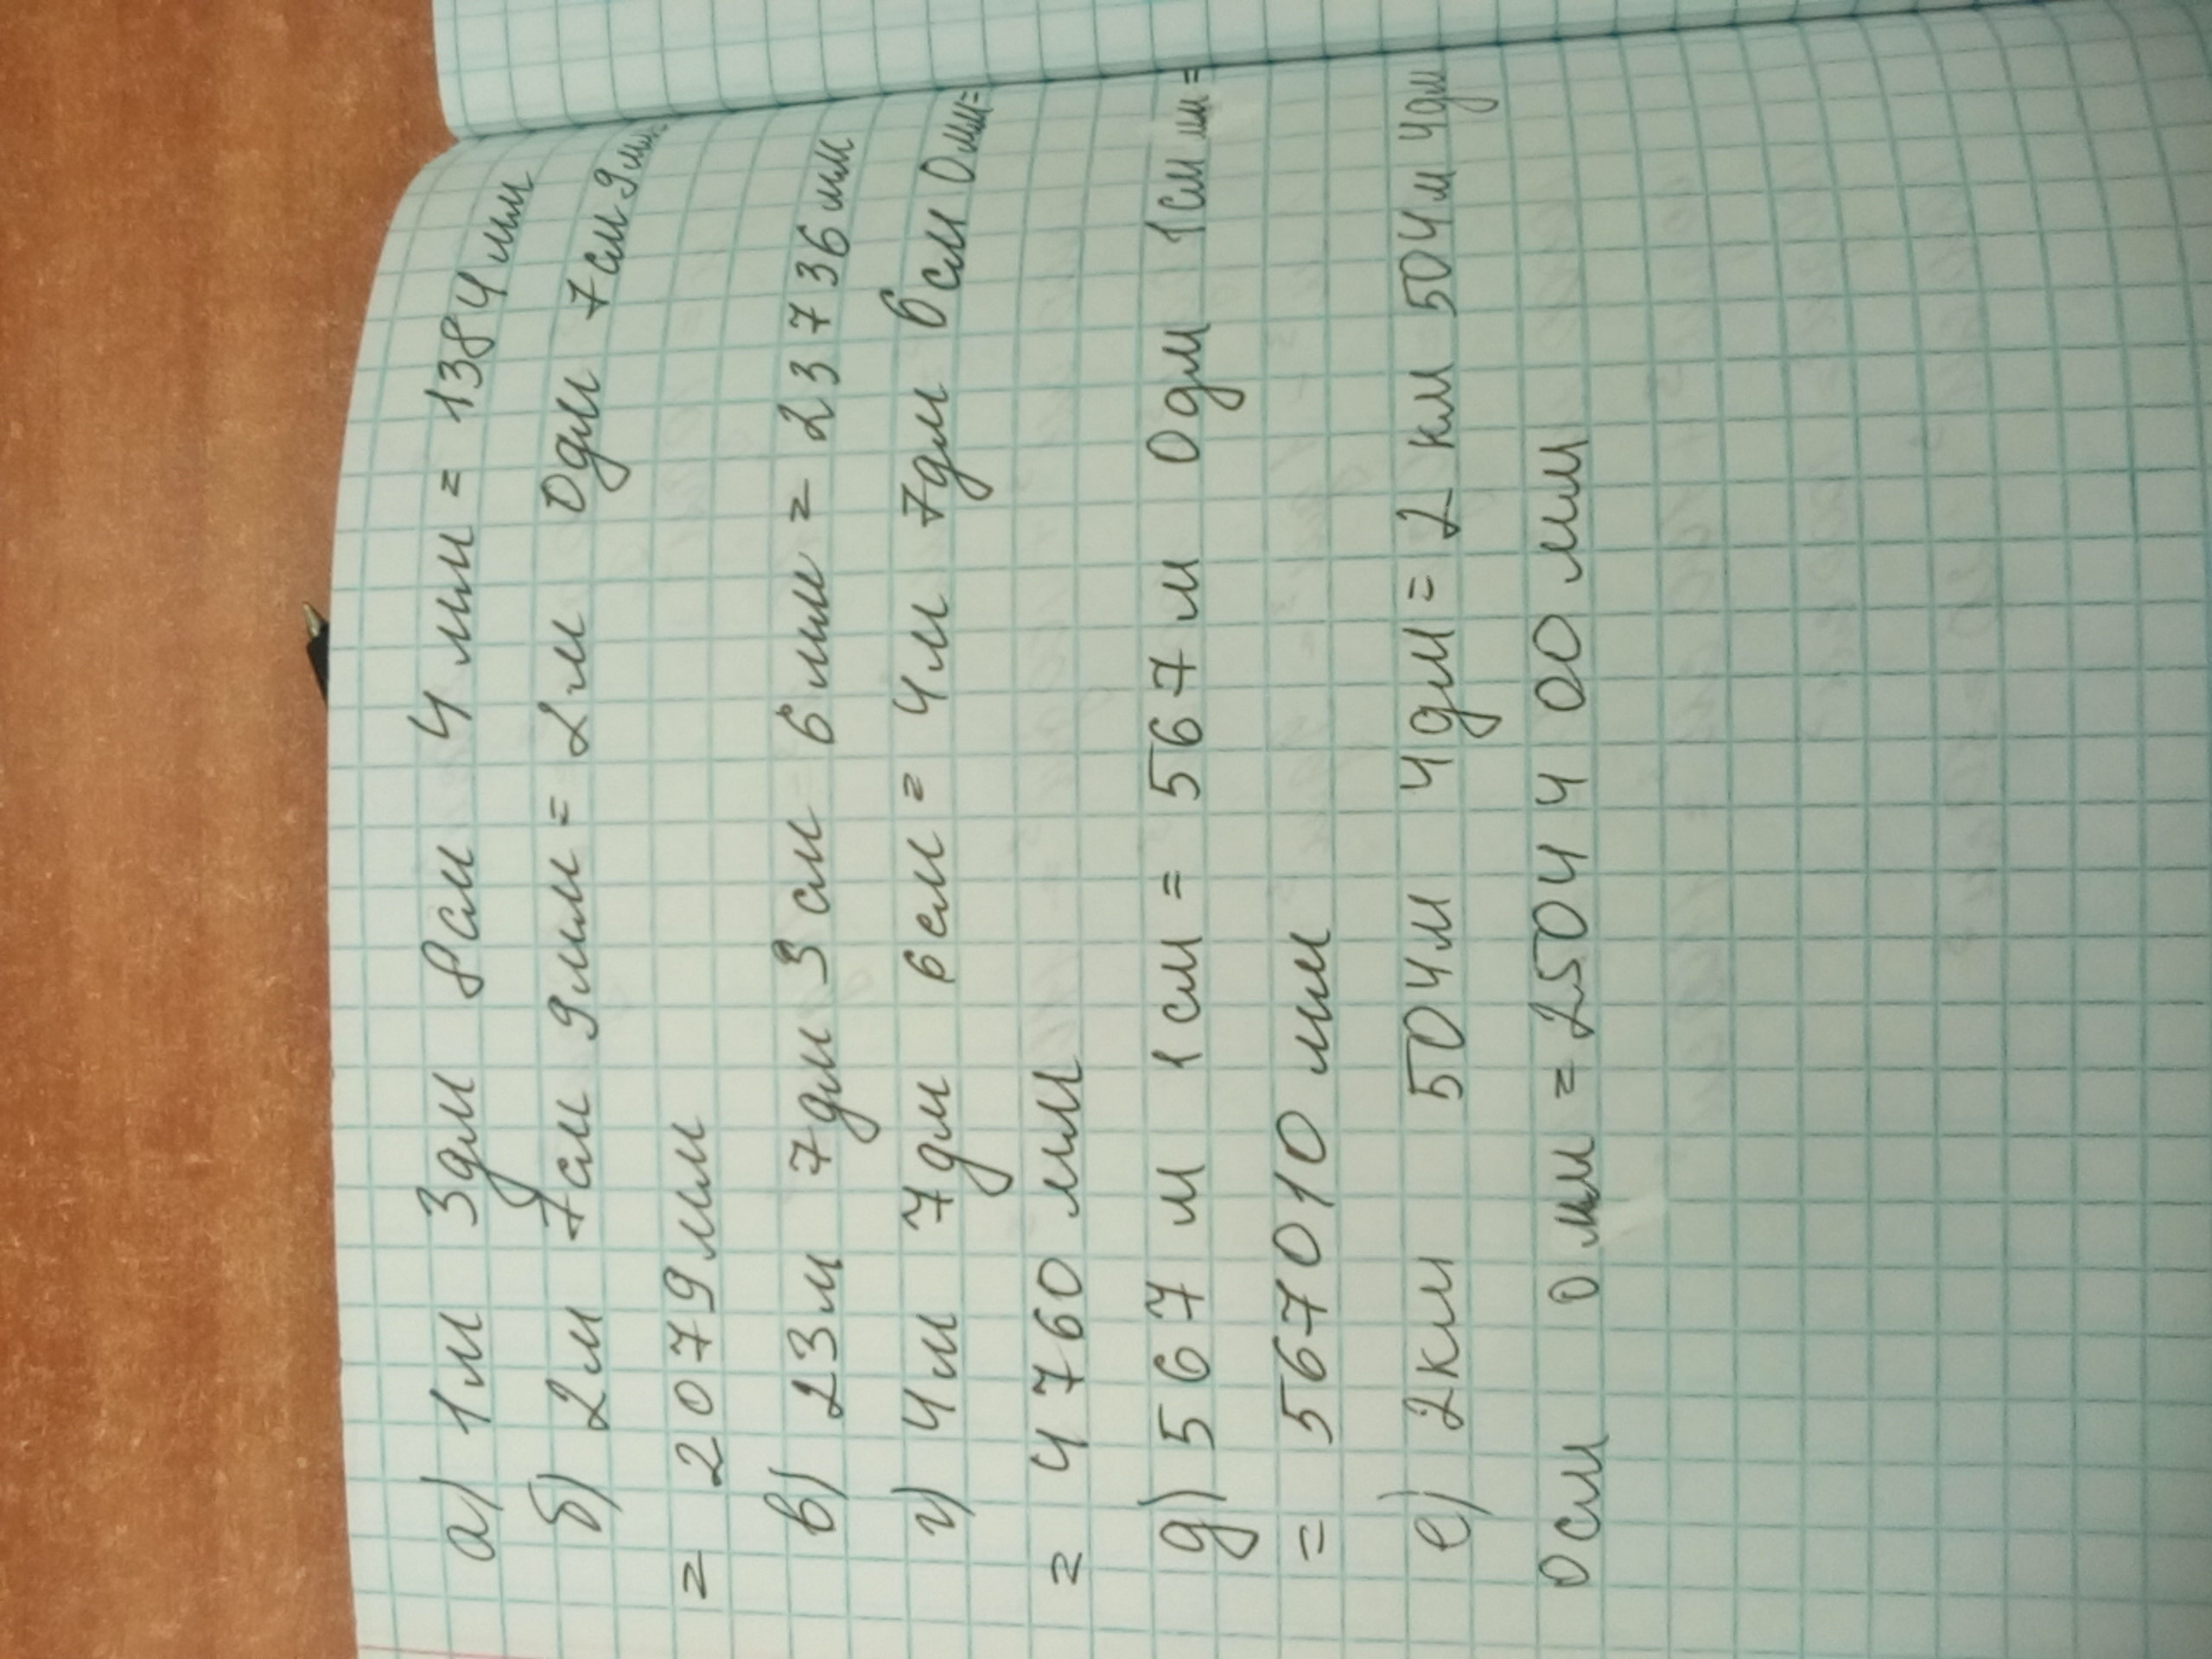 а) 1м 3дм 8см 4 мм = 1384 мм
б) 2м 7см 9мм = 2м 0дм 7см 9мм=
= 2079 мм
в) 23м 7дм 3 см 6 мм = 23736 мм
г) 4м 7дм 6см = 4м 7дм 6см 0мм=
= 4760 мм
д) 567 м 1см = 567м 0дм 1см мм =
= 567010 мм
е) 2км 504м 4дм = 2 км 504м 4дм
0см 0 мм = 2504400 мм